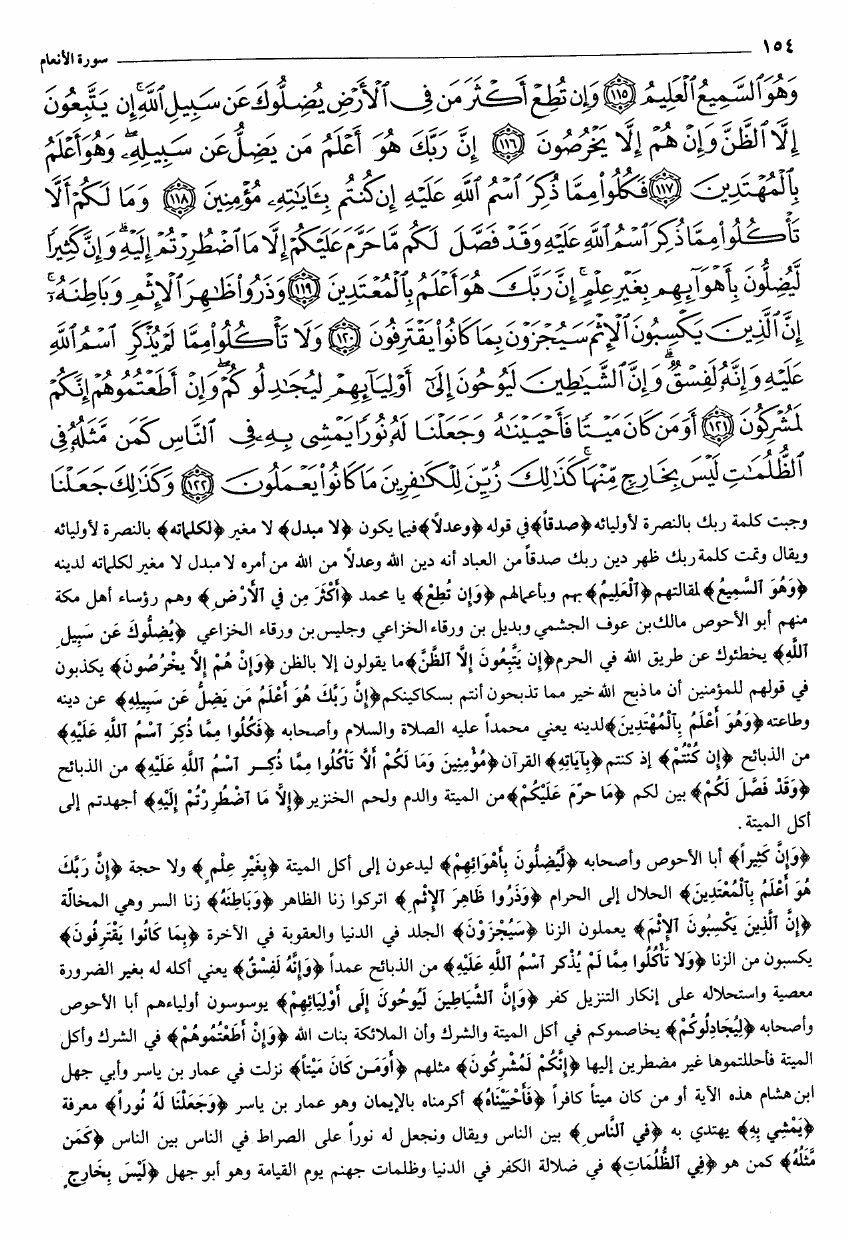 ١٥٤
سورة الأنعام
وَهُوَ ٱلسَّمِيعُ ٱلْعَلِيمُ ١١٥ وَإِن تُطِعْ أَكْثَرَ مَن فِى ٱلْأَرْضِ يُضِلُّوكَ عَن سَبِيلِ ٱللَّهِ ۚ إِن يَتَّبِعُونَ
إِلَّا ٱلظَّنَّ وَإِنْ هُمْ إِلَّا يَخْرُصُونَ ١١٦ إِنَّ رَبَّكَ هُوَ أَعْلَمُ مَن يَضِلُّ عَن سَبِيلِهِۦ ۖ وَهُوَ أَعْلَمُ
بِٱلْمُهْتَدِينَ ١١٧ فَكُلُوا۟ مِمَّا ذُكِرَ ٱسْمُ ٱللَّهِ عَلَيْهِ إِن كُنتُم بِـَٔايَٰتِهِۦ مُؤْمِنِينَ ١١٨ وَمَا لَكُمْ أَلَّا
تَأْكُلُوا۟ مِمَّا ذُكِرَ ٱسْمُ ٱللَّهِ عَلَيْهِ وَقَدْ فَصَّلَ لَكُم مَّا حَرَّمَ عَلَيْكُمْ إِلَّا مَا ٱضْطُرِرْتُمْ إِلَيْهِ ۗ وَإِنَّ كَثِيرًا
لَّيُضِلُّونَ بِأَهْوَآئِهِم بِغَيْرِ عِلْمٍ ۗ إِنَّ رَبَّكَ هُوَ أَعْلَمُ بِٱلْمُعْتَدِينَ ١١٩ وَذَرُوا۟ ظَٰهِرَ ٱلْإِثْمِ وَبَاطِنَهُۥٓ ۚ
إِنَّ ٱلَّذِينَ يَكْسِبُونَ ٱلْإِثْمَ سَيُجْزَوْنَ بِمَا كَانُوا۟ يَقْتَرِفُونَ ١٢٠ وَلَا تَأْكُلُوا۟ مِمَّا لَمْ يُذْكَرِ ٱسْمُ ٱللَّهِ
عَلَيْهِ وَإِنَّهُۥ لَفِسْقٌ ۗ وَإِنَّ ٱلشَّيَٰطِينَ لَيُوحُونَ إِلَىٰٓ أَوْلِيَآئِهِمْ لِيُجَٰدِلُوكُمْ ۖ وَإِنْ أَطَعْتُمُوهُمْ إِنَّكُمْ
لَمُشْرِكُونَ ١٢١ أَوَمَن كَانَ مَيْتًا فَأَحْيَيْنَٰهُ وَجَعَلْنَا لَهُۥ نُورًا يَمْشِى بِهِۦ فِى ٱلنَّاسِ كَمَن مَّثَلُهُۥ فِى
ٱلظُّلُمَٰتِ لَيْسَ بِخَارِجٍ مِّنْهَا ۚ كَذَٰلِكَ زُيِّنَ لِلْكَٰفِرِينَ مَا كَانُوا۟ يَعْمَلُونَ ١٢٢ وَكَذَٰلِكَ جَعَلْنَا
وجبت كلمة ربك بالنصرة لأوليائه ﴿صدقاً﴾ في قوله ﴿وعدلاً﴾ فيما يكون ﴿لا مبدل﴾ لا مغير ﴿لكلماته﴾ بالنصرة لأوليائه
ويقال وتمت كلمة ربك ظهر دين ربك صدقاً من العباد أنه دين الله وعدلاً من الله من أمره لا مبدل لا مغير لكلماته لدينه
﴿وَهُوَ ٱلسَّمِيعُ﴾ لمقالتهم ﴿ٱلْعَلِيمُ﴾ بهم وبأعمالهم ﴿وَإِن تُطِعْ﴾ يا محمد ﴿أَكْثَرَ مِن فِي ٱلأَرْضِ﴾ وهم رؤساء أهل مكة
منهم أبو الأحوص مالك بن عوف الجشمي وبديل بن ورقاء الخزاعي وجليس بن ورقاء الخزاعي ﴿يُضِلُّوكَ عَن سَبِيلِ
ٱللَّهِ﴾ يخطئوك عن طريق الله في الحرم ﴿إِن يَتَّبِعُونَ إِلَّا ٱلظَّنَّ﴾ ما يقولون إلا بالظن ﴿وَإِنْ هُمْ إِلَّا يَخْرُصُونَ﴾ يكذبون
في قولهم للمؤمنين أن ما ذبح الله خير مما تذبحون أنتم بسكاكينكم ﴿إِنَّ رَبَّكَ هُوَ أَعْلَمُ مَن يَضِلُّ عَن سَبِيلِهِ﴾ عن دينه
وطاعته ﴿وَهُوَ أَعْلَمُ بِٱلْمُهْتَدِينَ﴾ لدينه يعني محمداً عليه الصلاة والسلام وأصحابه ﴿فَكُلُوا مِمَّا ذُكِرَ ٱسْمُ ٱللَّهِ عَلَيْهِ﴾
من الذبائح ﴿إِن كُنْتُمْ﴾ إذ كنتم ﴿بِآيَاتِهِ﴾ القرآن ﴿مُؤْمِنِينَ وَمَا لَكُمْ أَلَّا تَأْكُلُوا مِمَّا ذُكِرَ ٱسْمُ ٱللَّهِ عَلَيْهِ﴾ من الذبائح
﴿وَقَدْ فَصَّلَ لَكُمْ﴾ بين لكم ﴿مَا حرَّمَ عَلَيْكُمْ﴾ من الميتة والدم ولحم الخنزير ﴿إِلَّا مَا ٱضْطُرِرْتُمْ إِلَيْهِ﴾ أجهدتم إلى
أكل الميتة.
﴿وَإِنَّ كَثِيراً﴾ أبا الأحوص وأصحابه ﴿لَّيُضِلُّونَ بِأَهْوَائِهِمْ﴾ ليدعون إلى أكل الميتة ﴿بِغَيْرِ عِلْمٍ﴾ ولا حجة ﴿إِنَّ رَبَّكَ
هُوَ أَعْلَمُ بِٱلْمُعْتَدِينَ﴾ الحلال إلى الحرام ﴿وَذَرُوا ظَاهِرَ ٱلإِثْمِ﴾ اتركوا زنا الظاهر ﴿وَبَاطِنَهُ﴾ زنا السر وهي المخالّة
﴿إِنَّ ٱلَّذِينَ يَكْسِبُونَ ٱلإِثْمَ﴾ يعملون الزنا ﴿سَيُجْزَوْنَ﴾ الجلد في الدنيا والعقوبة في الآخرة ﴿بِمَا كَانُوا يَقْتَرِفُونَ﴾
يكسبون من الزنا ﴿وَلَا تَأْكُلُوا مِمَّا لَمْ يُذْكر ٱسْمُ ٱللَّهِ عَلَيْهِ﴾ من الذبائح عمداً ﴿وَإِنَّهُ لَفِسْقٌ﴾ يعني أكله له بغير الضرورة
معصية واستحلاله على إنكار التنزيل كفر ﴿وَإِنَّ الشَّيَاطِينَ لَيُوحُونَ إِلَى أَوْلِيَائِهِمْ﴾ يوسوسون أولياءهم أبا الأحوص
وأصحابه ﴿لِيُجَادِلُوكُمْ﴾ يخاصموكم في أكل الميتة والشرك وأن الملائكة بنات الله ﴿وَإِنْ أَطَعْتُمُوهُمْ﴾ في الشرك وأكل
الميتة فأحللتموها غير مضطرين إليها ﴿إِنَّكُمْ لَمُشْرِكُونَ﴾ مثلهم ﴿أَوَمَن كَانَ مَيْتاً﴾ نزلت في عمار بن ياسر وأبي جهل
ابن هشام هذه الآية أو من كان ميتاً كافراً ﴿فَأَحْيَيْنَاهُ﴾ أكرمناه بالإيمان وهو عمار بن ياسر ﴿وَجَعَلْنَا لَهُ نُوراً﴾ معرفة
﴿يَمْشِي بِهِ﴾ يهتدي به ﴿فِي ٱلنَّاسِ﴾ بين الناس ويقال ونجعل له نوراً على الصراط في الناس بين الناس ﴿كَمَن
مَّثَلُهُ﴾ كمن هو ﴿فِي ٱلظُّلُمَاتِ﴾ في ضلالة الكفر في الدنيا وظلمات جهنم يوم القيامة وهو أبو جهل ﴿لَيْسَ بِخَارِجٍ